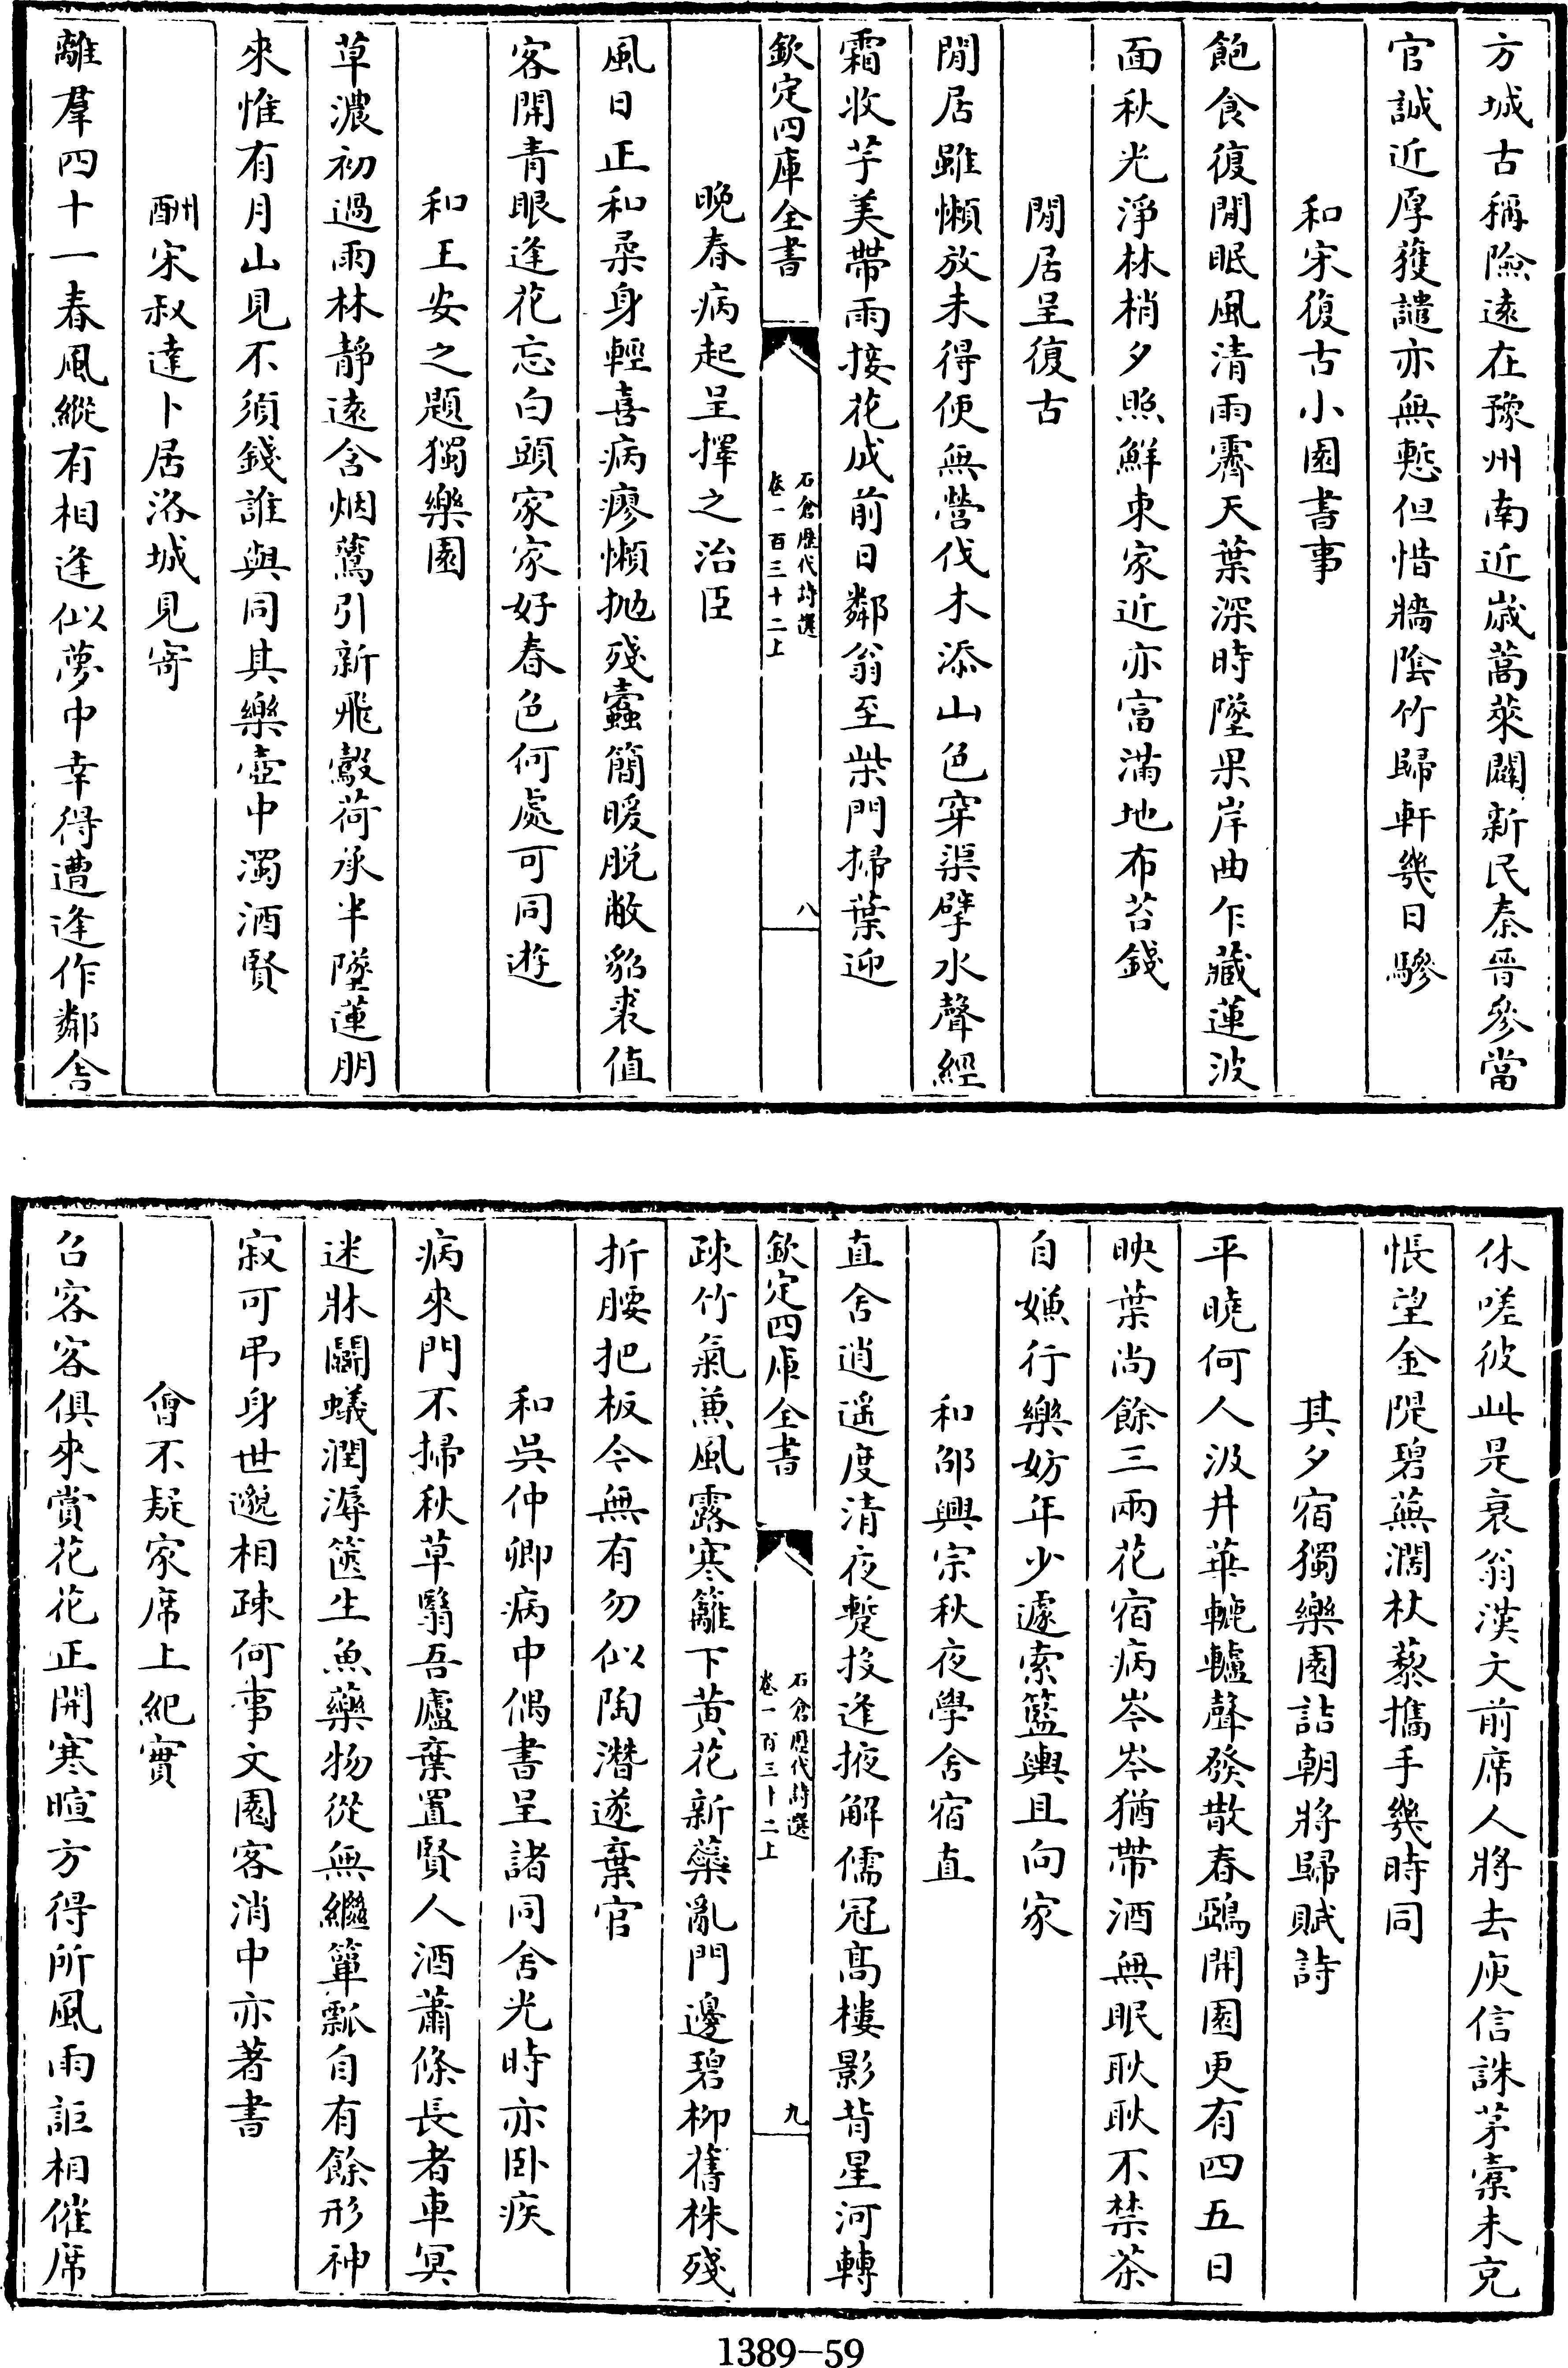 方城古稱險遠在豫州南近嵗蒿萊闢新民秦晉參當
官誠近厚獲譴亦無慙但惜牆陰竹歸軒幾日驂
和宋復古小園書事
飽食復閒眠風清雨霽天葉深時墜果岸曲乍藏蓮波
面秋光淨林梢夕照鮮東家近亦富滿地布苔錢
閒居呈復古
閒居雖懶放未得便無營伐木添山色穿渠擘水聲經
霜收芋美帶雨接花成前日鄰翁至柴門掃葉迎
欽定四庫全書
石倉歴代詩選
卷一百三十二上
八
晚春病起呈擇之治臣
風日正和柔身輕喜病瘳懶抛殘蠹簡暖脱敝貂裘值
客開青眼逢花忘白頭家家好春色何處可同遊
和王安之題獨樂園
草濃初過雨林靜遠含烟鶯引新飛鷇荷承半墜蓮朋
來惟有月山見不須錢誰與同其樂壺中濁酒賢
酬宋叔達卜居洛城見寄
離羣四十一春風縱有相逢似夢中幸得遭逢作鄰舍
休嗟彼此是衰翁漢文前席人將去庾信誅茅槖未充
悵望金隄碧蕪濶杖藜攜手幾時同
其夕宿獨樂園詰朝將歸賦詩
平曉何人汲井華轆轤聲發散春鵶開園更有四五日
映葉尚餘三兩花宿病岑岑猶帶酒無眠耿耿不禁茶
自嫌行樂妨年少遽索籃輿且向家
和邵興宗秋夜學舍宿直
直舍逍遥度清夜蹔投逢掖解儒冠髙樓影背星河轉
欽定四庫全書
石倉歴代詩選
卷一百三十二上
九
疎竹氣兼風露寒籬下黄花新蘂亂門邊碧柳舊株殘
折腰把板今無有勿似陶潛遂棄官
和吳仲卿病中偶書呈諸同舍光時亦卧疾
病來門不掃秋草翳吾廬棄置賢人酒蕭條長者車冥
迷牀鬬蟻潤溽篋生魚藥物從無繼簞瓢自有餘形神
寂可弔身世邈相疎何事文園客消中亦著書
㑹不疑家席上紀實
召客客俱來賞花花正開寒暄方得所風雨詎相催席
1389-59